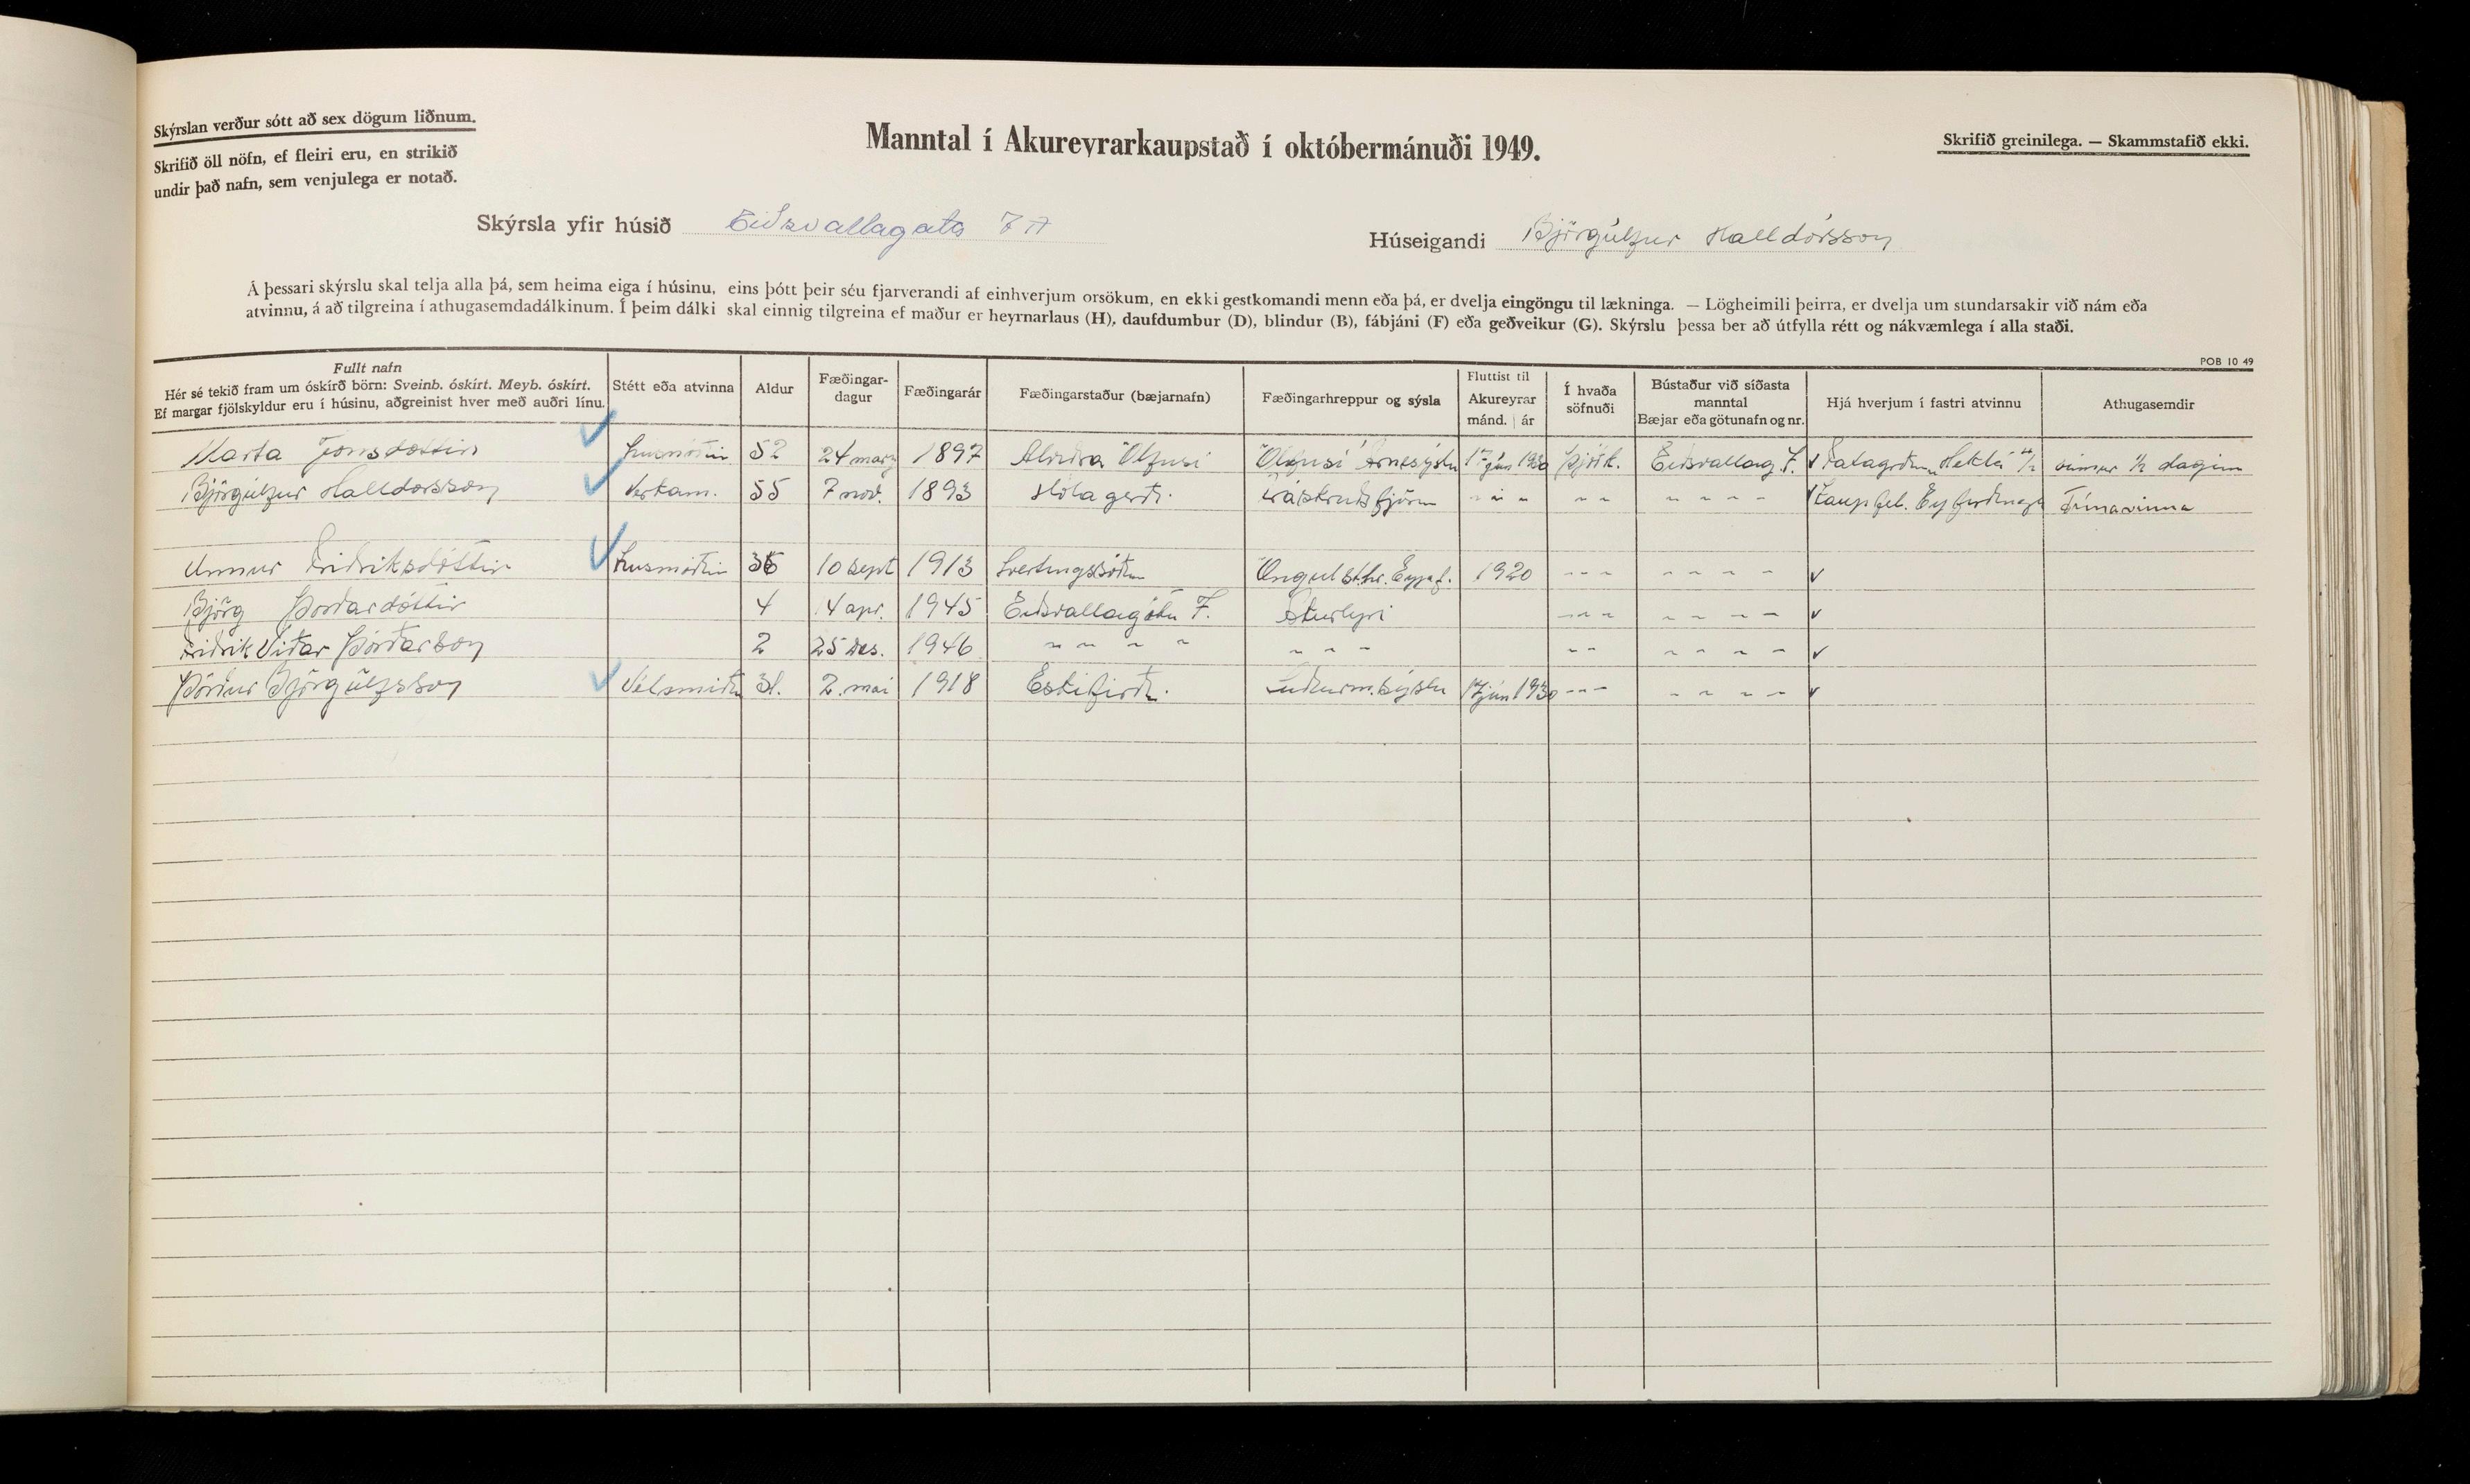 Skýrslan verður sótt að sex dögum liðnum.
Skrifið öll nöfn, ef fleiri eru, en strikið
undir það nafn, sem venjulega er notað.
Manntal í Akureyrarkaupstað í októbermánuði 1949.
Skrifið greinilega. — Skammstafið ekki.
Skýrsla yfir húsið Eiðsvallagata 7A
Húseigandi Björgúlfur Halldórsson
Á þessari skýrslu skal telja alla þá, sem heima eiga í húsinu, eins þótt þeir séu fjarverandi af einhverjum orsökum, en ekki gestkomandi menn eða þá, er dvelja eingöngu til lækninga. — Lögheimili þeirra, er dvelja um stundarsakir við nám eða
atvinnu, á að tilgreina í athugasemdadálkinum. Í þeim dálki skal einnig tilgreina ef maður er heyrnarlaus (H), daufdumbur (D), blindur (B), fábjáni (F) eða geðveikur (G). Skýrslu þessa ber að útfylla rétt og nákvæmlega í alla staði.
POB 10 49
Fullt nafn
Hér sé tekið fram um óskírð börn: Sveinb. óskírt. Meyb. óskírt.
Ef margar fjölskyldur eru í húsinu, aðgreinist hver með auðri línu.
Stétt eða atvinna
Aldur
Fæðingar-
dagur
Fæðingarár
Fæðingarstaður (bæjarnafn)
Fæðingarhreppur og sýsla
Fluttist til
Akureyrar
mánd. | ár
Í hvaða
söfnuði
Bústaður við síðasta
manntal
Bæjar eða götunafn og nr.
Hjá hverjum í fastri atvinnu
Athugasemdir
Marta Jónsdóttir 52 24 marz 1897 Ölfusi Ölfusi Árnesýslu 17 jún 1930 Þjóðk. Eiðsvallag. 7. Fatagerðin Hekla 1/2 vinnur 1/2 daginn
Björgúlfur Halldórsson Verkam. 55 7 nóv. 1893 Hólagerði. Fáskrúðsfjörn " " " " " " " " " Kaupfél. Eyfirðinga Tímavinna
Unnur Friðriksdóttir Húsmóðir 36 10 sept 1913 Öngulst.hr. Eyjaf. 1920 " " " " " " "
Björg Þórðardóttir 4 14 apr. 1945 Eiðsvallagötu 7. Akureyri " " " " " " "
Friðrik Viðar Þórðarson 2 25 des. 1946 " " " " " " " " " " " " "
Þórður Björgúlfsson Vélsmiður 31. 2. maí 1918 Eskifirði. Suðurm.sýslu 17 jún 1930 " " " " " " "